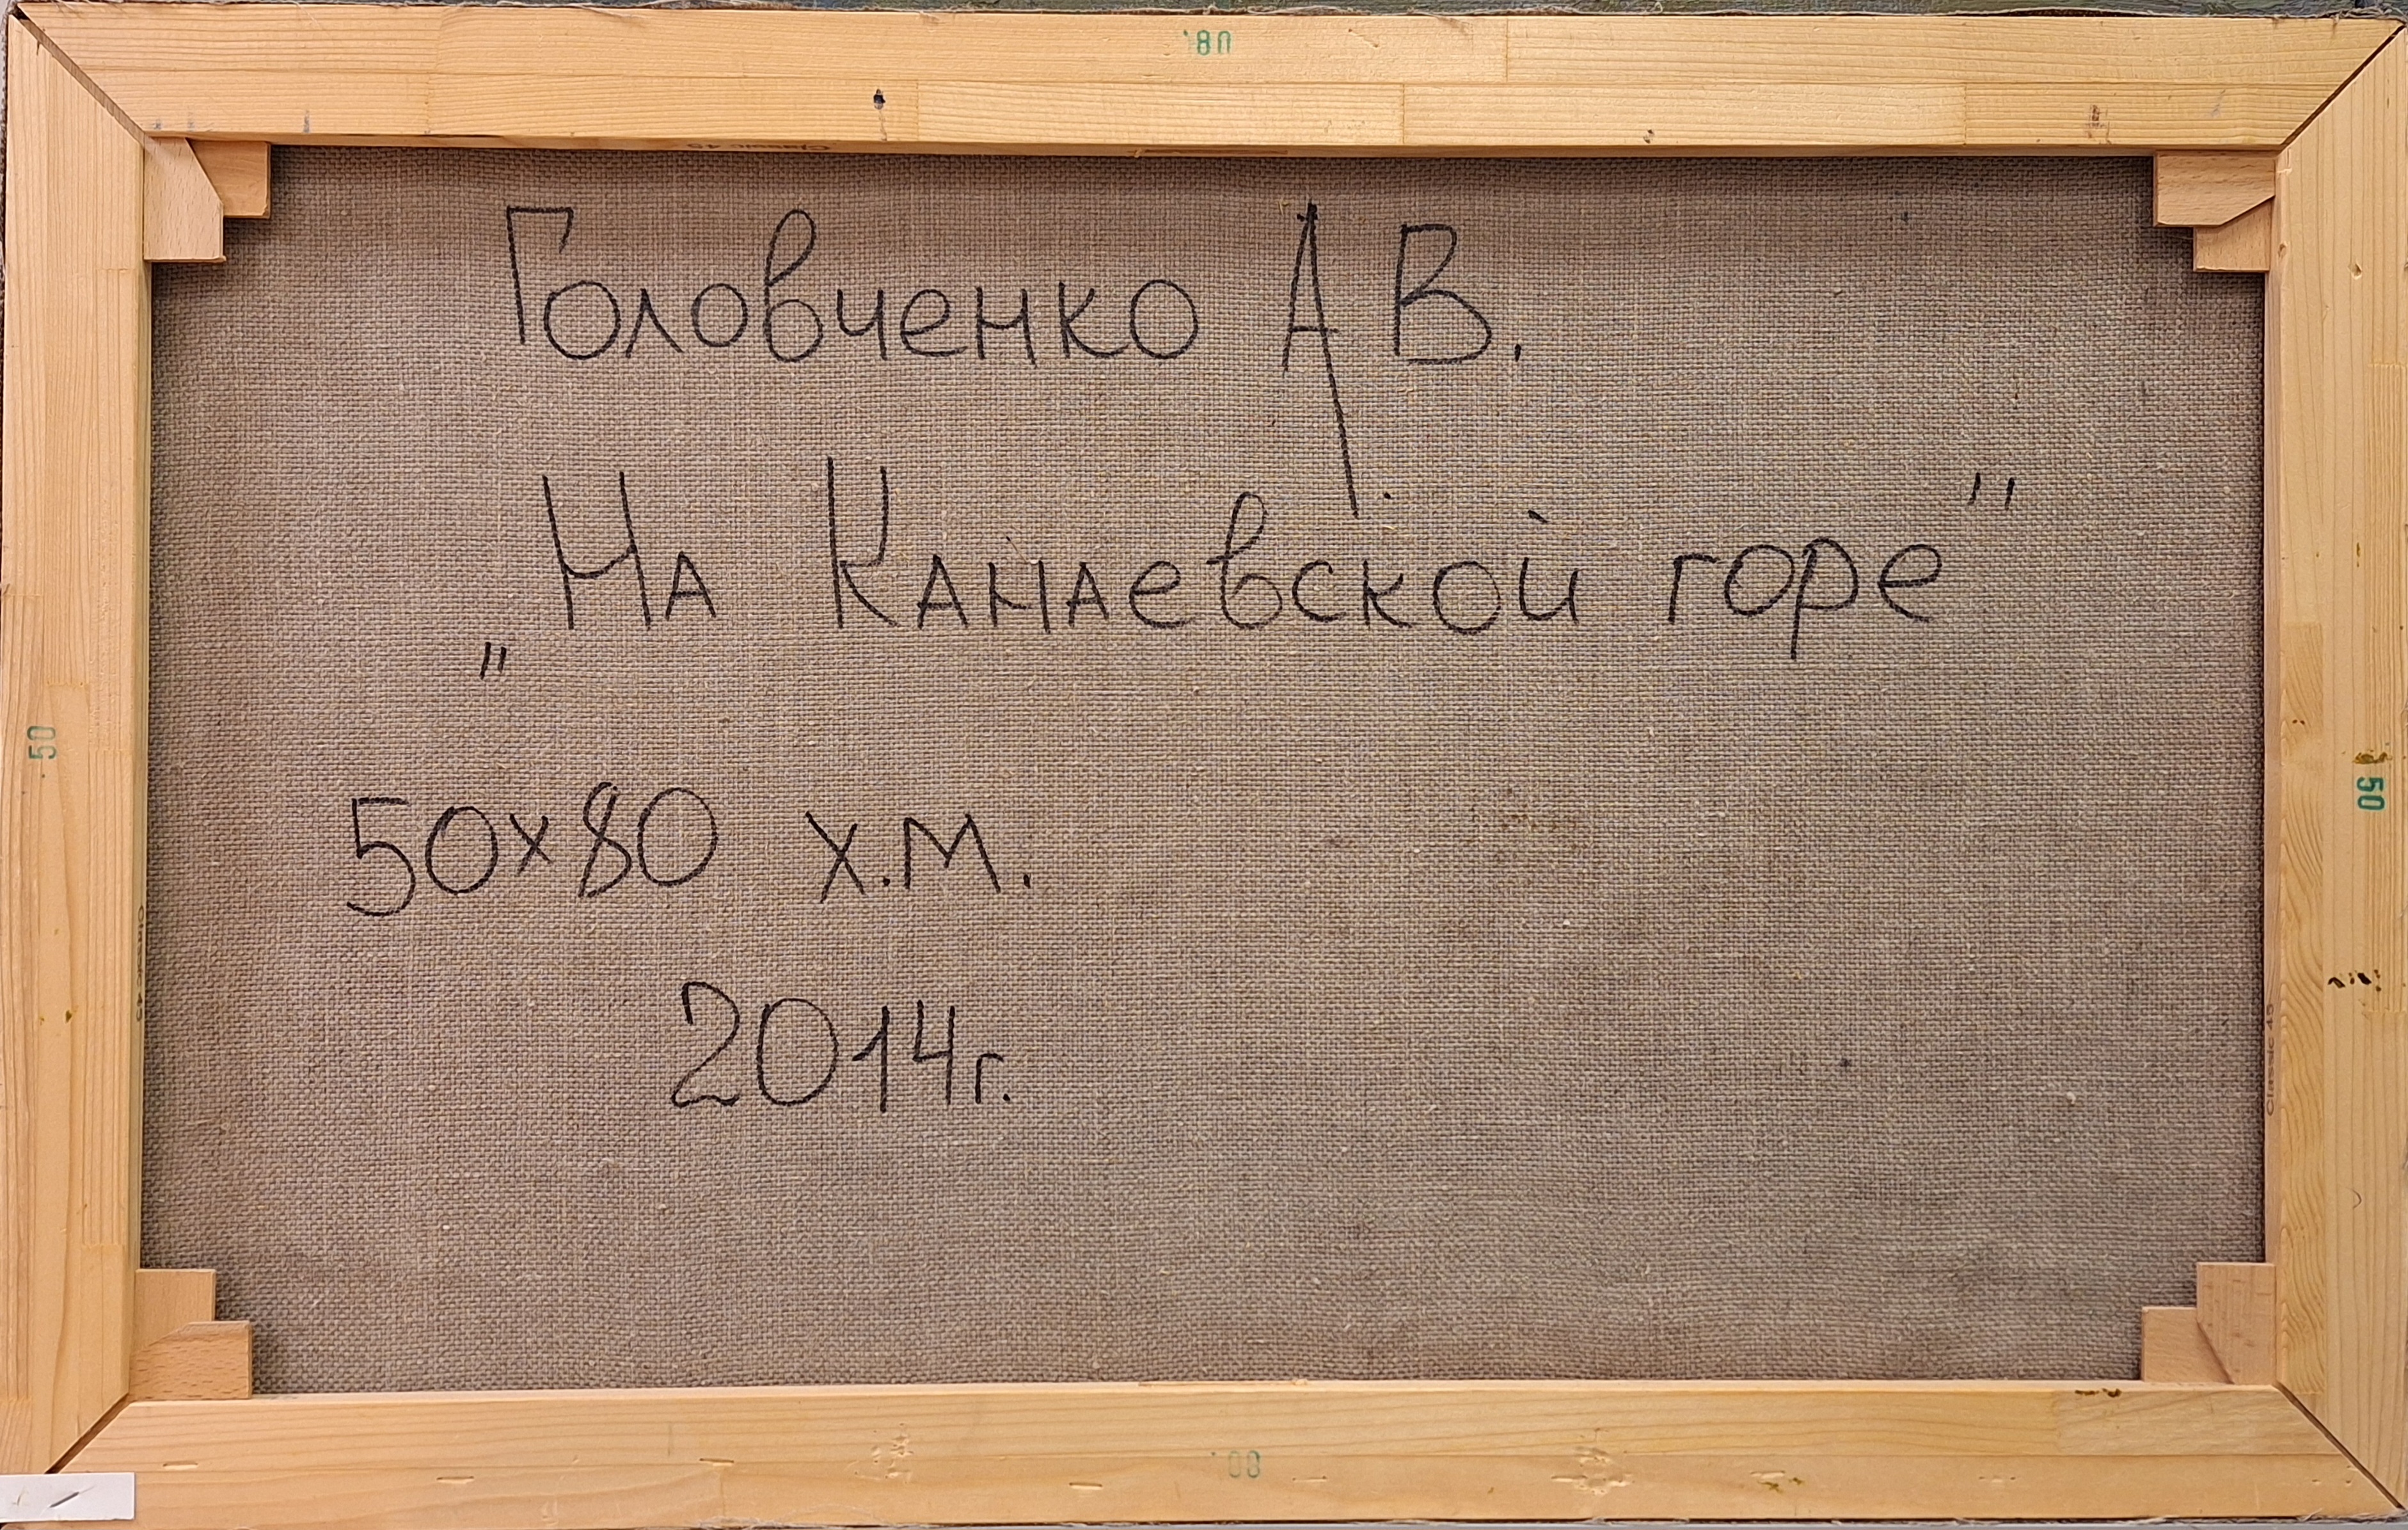 80
Classic 45
Головченко А.В.
„На Канаевской горе"
50х80 х.м.
2014г.
50
50
Classic 45
Classic 45
80